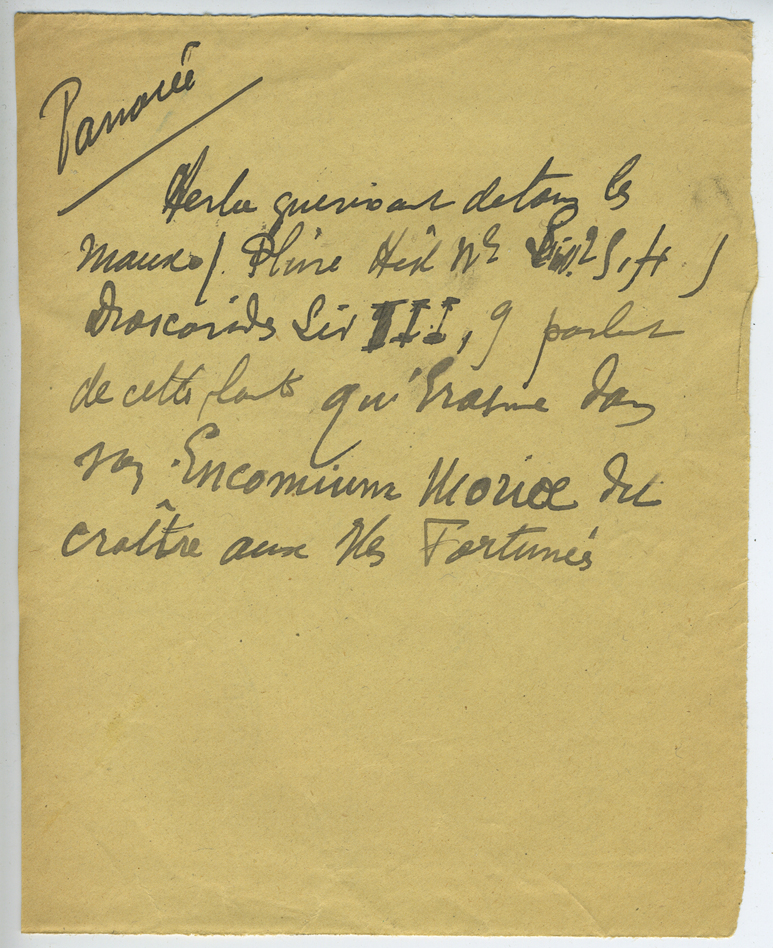 Panacée
Herbe guerissant de tous les
maux ( Pline Hist Nlle Liv. 25, 4 )
Dioscoride Liv III, 9 parlent
de cette plante qu'Erasme dans
son Encomium Moriae dit
croître aux Iles Fortunés